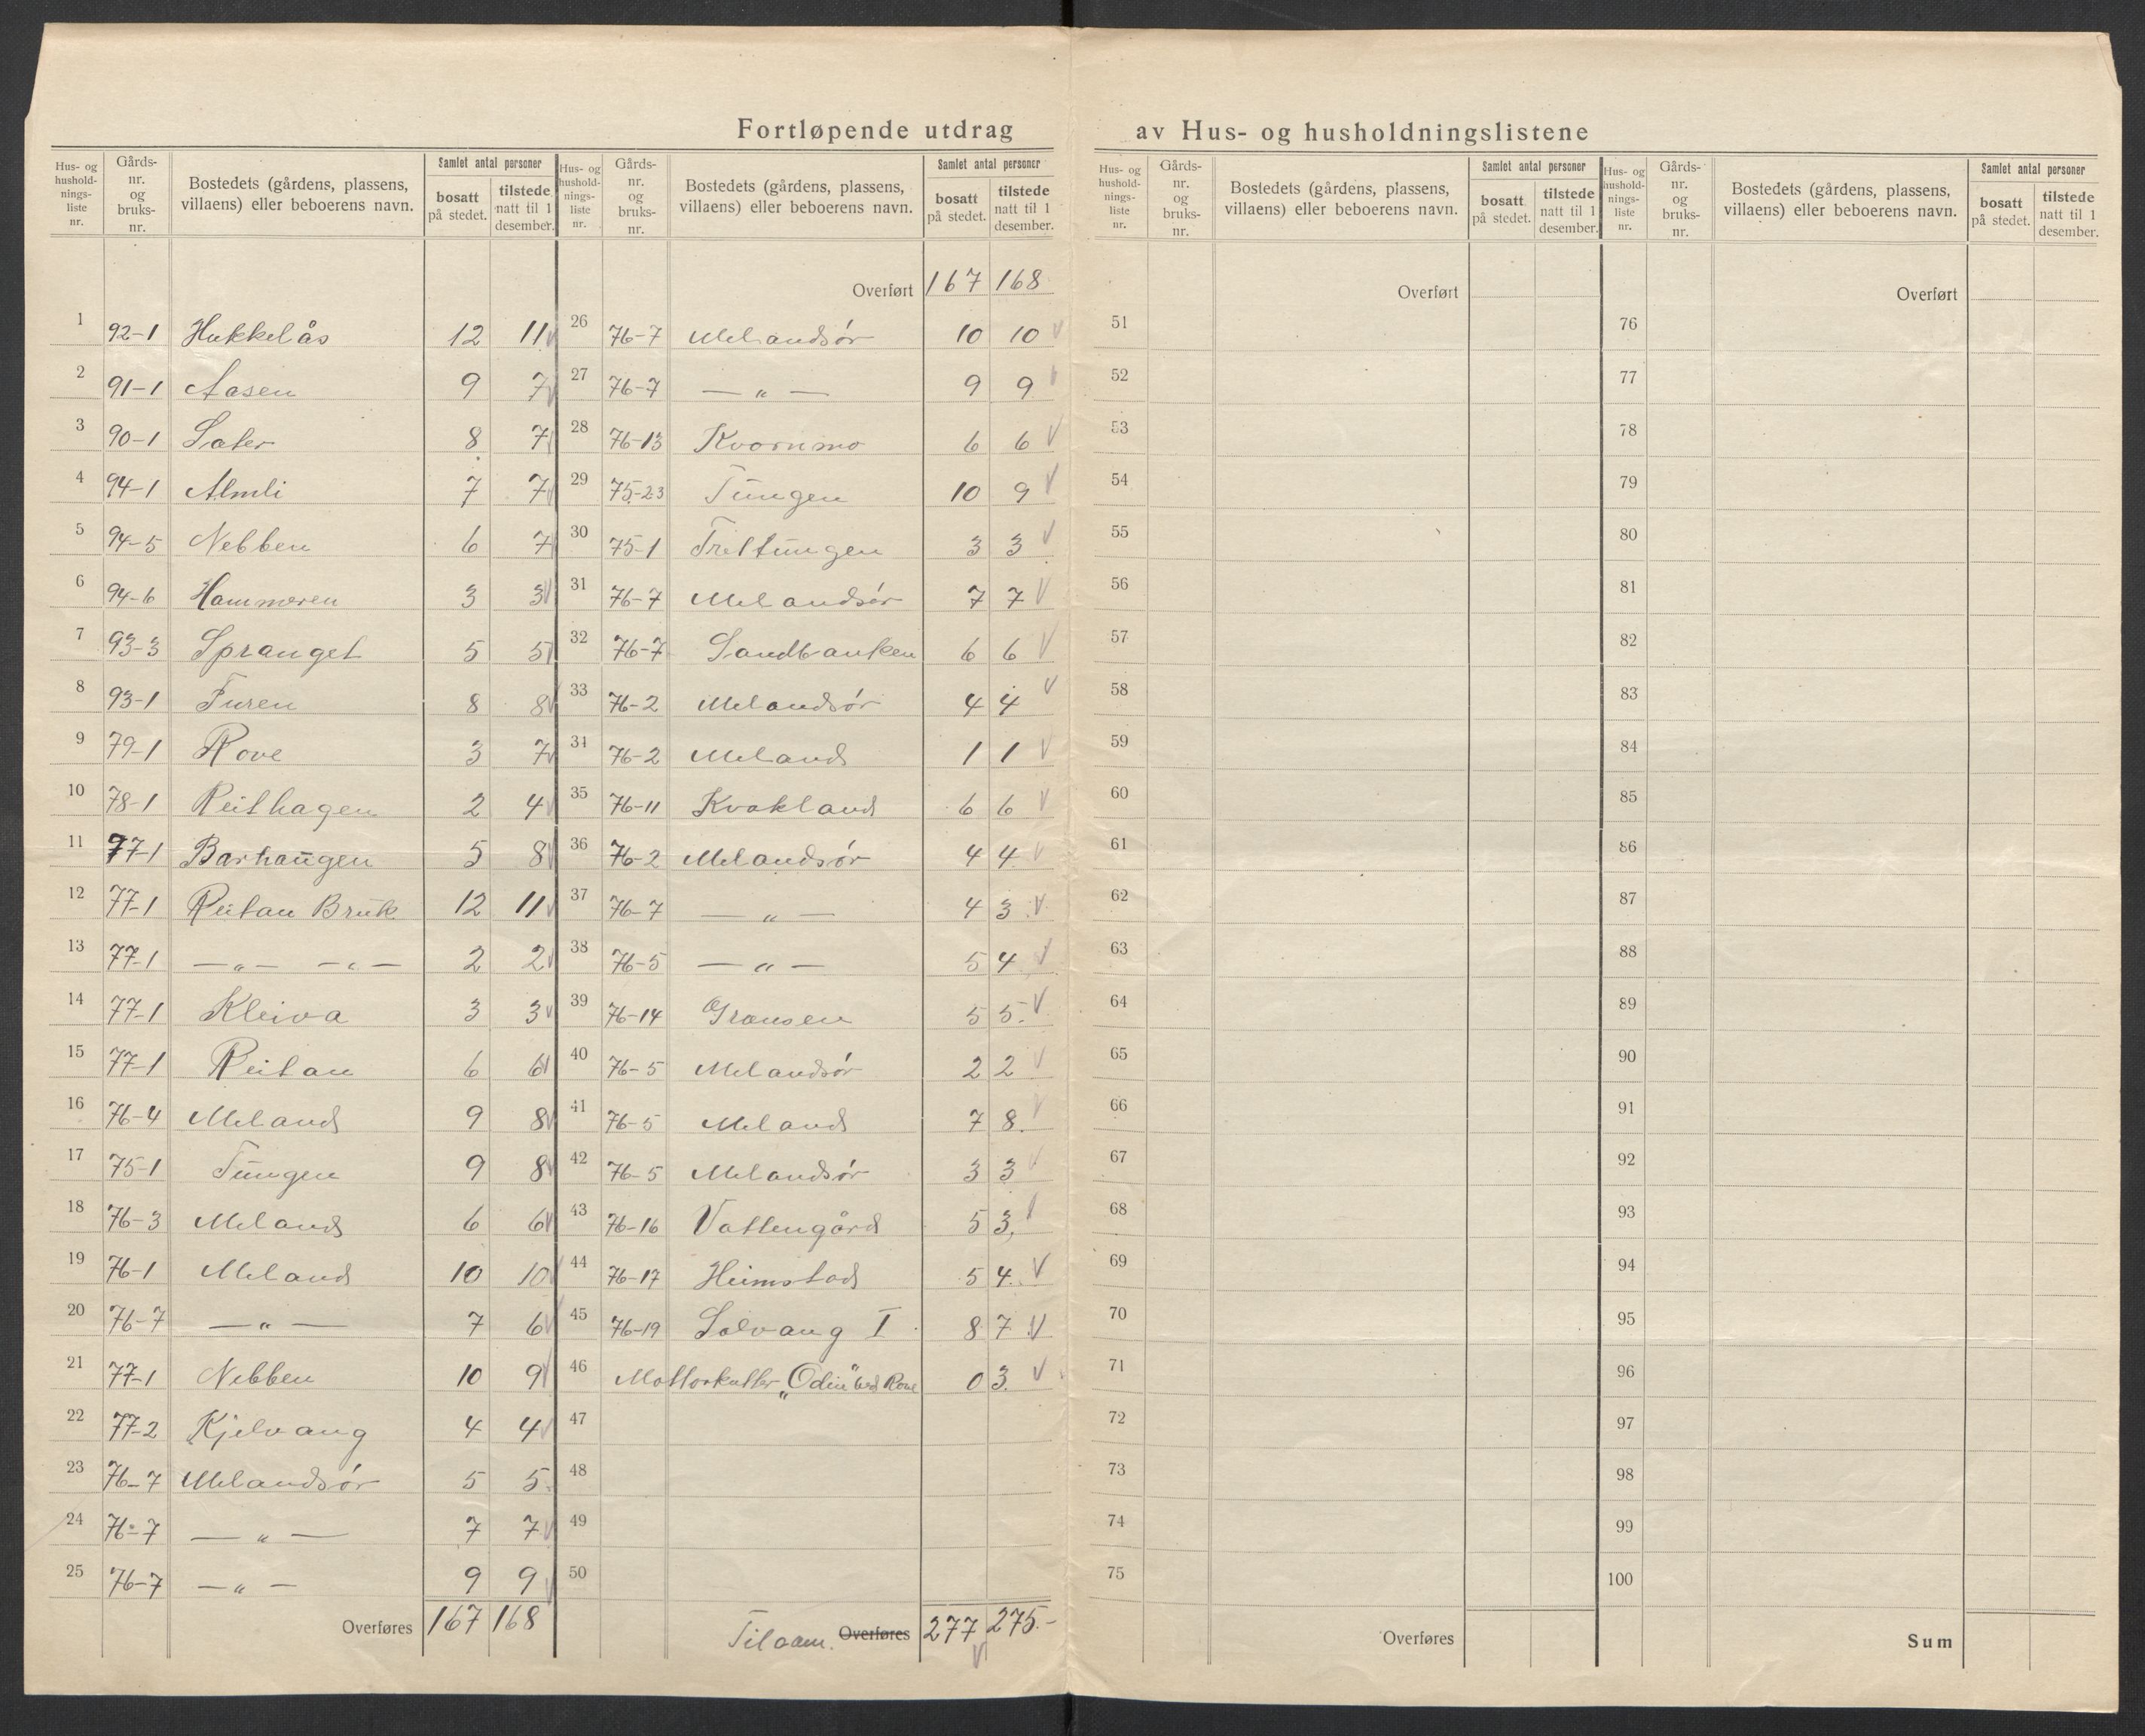 Fortløpende utdrag av Hus- og husholdningslistene
Hus- og husholdnings-liste nr. | Gårds-nr. og bruks-nr. | Bostedets (gårdens, plassens, villaens) eller beboerens navn. | Samlet antal personer | bosatt på stedet. | tilstede natt til 1 desember.
1 92-1 Hukkelås 12 11
2 91-1 Aasen 9 7
3 90-1 Sæter 8 7
4 94-1 Almli 7 7
5 94-5 Nebben 6 7
6 94-6 Hammeren 3 3
7 93-3 Spranget 5 5
8 93-1 Furen 8 8
9 79-1 Rove 3 7
10 78-1 Reithagen 2 4
11 77-1 Barhaugen 5 8
12 77-1 Reitan Bruk 12 11
13 77-1 — „ — — „ — 2 2
14 77-1 Kleiva 3 3
15 77-1 Reitan 6 6
16 76-4 Meland 9 8
17 75-1 Tungen 9 8
18 76-3 Meland 6 6
19 76-1 Meland 10 10
20 76-7 — „ — 7 6
21 77-1 Nebben 10 9
22 77-2 Kjelvang 4 4
23 76-7 Melandsør 5 5
24 76-7 — „ — 7 7
25 76-7 — „ — 9 9
Overføres 167 168
Hus- og husholdnings-liste nr. | Gårds-nr. og bruks-nr. | Bostedets (gårdens, plassens, villaens) eller beboerens navn. | Samlet antal personer | bosatt på stedet. | tilstede natt til 1 desember.
Overført 167 168
26 76-7 Melandsør 10 10
27 76-7 — „ — 9 9
28 76-13 Kvornmo 6 6
29 75-23 Tungen 10 9
30 75-1 Treltungen 3 3
31 76-7 Melandsør 7 7
32 76-7 Sandbanken 6 6
33 76-2 Melandsør 4 4
34 76-2 Meland 1 1
35 76-11 Kvakland 6 6
36 76-2 Melandsør 4 4
37 76-7 — „ — 4 3
38 76-5 — „ — 5 4
39 76-14 Gransen 5 5
40 76-5 Melandsør 2 2
41 76-5 Meland 7 8
42 76-5 Melandsør 3 3
43 76-16 Vollengård 5 3
44 76-17 Heimstad 5 4
45 76-19 Solvang I 8 7
46 Mottorkutter „Odin" ved Rove 0 3
47
48
49
50
Tilsam. Overføres 277 275.-
Hus- og husholdnings-liste nr. | Gårds-nr. og bruks-nr. | Bostedets (gårdens, plassens, villaens) eller beboerens navn. | Samlet antal personer | bosatt på stedet. | tilstede natt til 1 desember.
Overført
51
52
53
54
55
56
57
58
59
60
61
62
63
64
65
66
67
68
69
70
71
72
73
74
75
Overføres
Hus- og husholdnings-liste nr. | Gårds-nr. og bruks-nr. | Bostedets (gårdens, plassens, villaens) eller beboerens navn. | Samlet antal personer | bosatt på stedet. | tilstede natt til 1 desember.
Overført
76
77
78
79
80
81
82
83
84
85
86
87
88
89
90
91
92
93
94
95
96
97
98
99
100
Sum